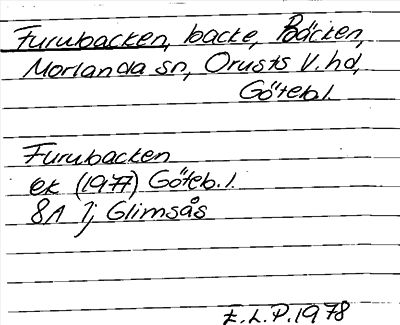 Furubacken, backe, Bäcken,
Morlanda sn, Orusts V. hd,
Göteb. l.
Furubacken
ek (1977) Göteb. l.
8A 7j Glimsås
E. L. P. 1978